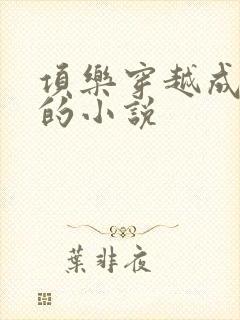 項樂穿越成
的小説
葉非夜